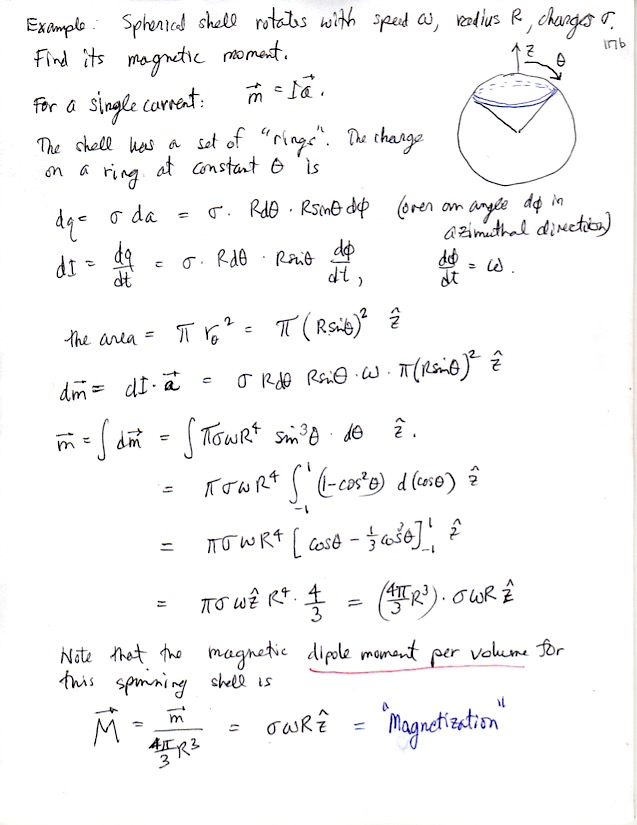 Example: Spherical shell rotates with speed ω, radius R, charges σ.
Find its magnetic moment.
176
z θ
For a single current: m⃗ = I a⃗.
The shell has a set of "rings". The charge
on a ring at constant θ is
dq = σ da = σ. Rdθ · Rsinθ dϕ (over an angle dϕ in
azimuthal direction)
dI = dq/dt = σ. Rdθ · Rsinθ dϕ/dt, dϕ/dt = ω.
the area = π r_θ² = π (Rsinθ)² ẑ
dm⃗ = dI· a⃗ = σ Rdθ Rsinθ · ω · π(Rsinθ)² ẑ
m⃗ = ∫ dm⃗ = ∫ πσωR⁴ sin³θ · dθ ẑ.
= πσωR⁴ ∫₋₁¹ (1-cos²θ) d(cosθ) ẑ
= πσωR⁴ [cosθ - 1/3 cos³θ]₋₁¹ ẑ
= πσωẑ R⁴ · 4/3 = (4π/3 R³) · σωR ẑ
Note that the magnetic dipole moment per volume for
this spinning shell is
M⃗ = m⃗ / (4π/3 R³) = σωRẑ = "Magnetization"